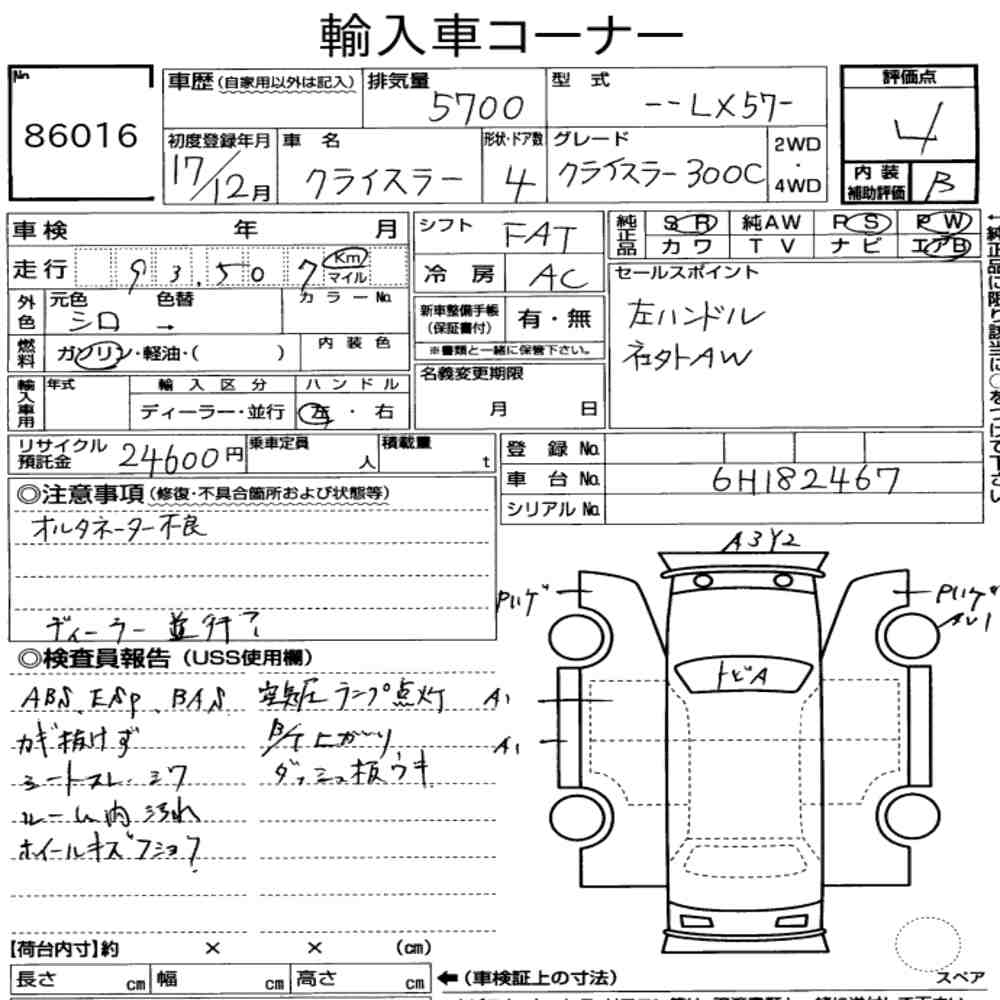 輸入車コーナー
No. 86016
車歴 (自家用以外は記入)
排気量 5700
型式 --LX57-
評価点 4
初度登録年月 17/12月
車名 クライスラー
形状・ドア数 4
グレード クライスラー300C
2WD・4WD
内装補助評価 B
車検 年 月
シフト FAT
純正品 SR 純AW PS PW
カワ TV ナビ エアB
走行 93,507 Km マイル
冷房 AC
セールスポイント
左ハンドル
社外AW
外色 元色 シロ 色替 → カラーNo.
新車整備手帳(保証書付) 有・無
※書類と一緒に保管下さい。
燃料 ガソリン・軽油・( ) 内装色
名義変更期限 月 日
輸入車用 年式 輸入区分 ハンドル
ディーラー・並行 左・右
←純正品に限り該当に○をつけて下さい
リサイクル預託金 24600円
乗車定員 人
積載量 t
登録No.
車台No. 6H182467
シリアルNo.
◎注意事項 (修復・不具合箇所および状態等)
オルタネーター不良
ディーラー並行?
◎検査員報告 (USS使用欄)
ABS、ESP、BAS 空気圧ランプ点灯
カギ抜けず
シートスレ・シワ ダッシュ板ウキ
ルーム内汚れ
ホイールキズ
A3Y2
Pハゲ
Pハゲ
AU1
トビA
A1
A1
【荷台内寸】約 × × (cm)
長さ cm 幅 cm 高さ cm ← (車検証上の寸法)
スペア